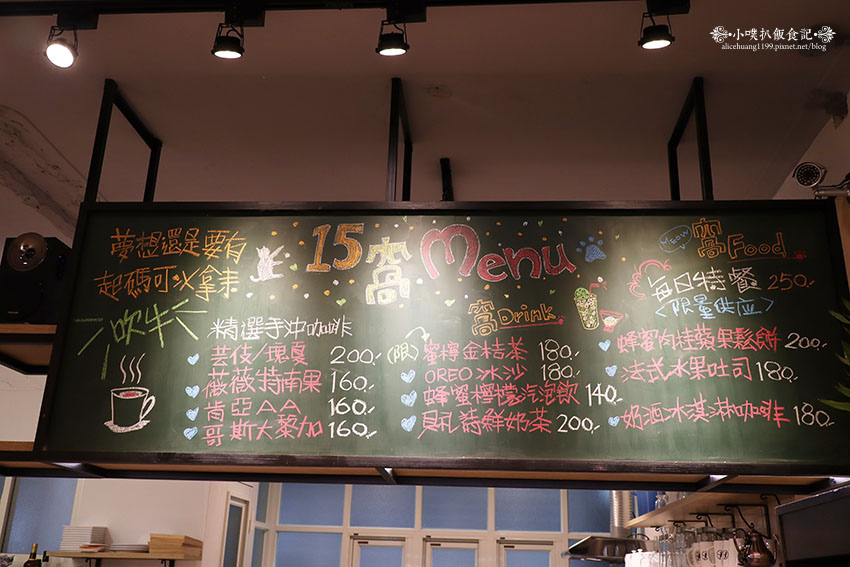 小噗扒飯食記
alicehuang1199.pixnet.net/blog
夢想還是要有
起碼可以拿來
吹牛
15窩 Menu
精選手沖咖啡
芸伎/瑰夏 200
薇薇特南果 160
肯亞AA 160
哥斯大黎加 160
窩 Drink
(限) 蜜檸金桔茶 180
OREO冰沙 180
蜂蜜檸檬汽泡飲 140
貝礼詩鮮奶茶 200
Meow
窩 Food
每日特餐 250
<限量供应>
蜂蜜肉桂蘋果鬆餅 200
法式水果吐司 180
奶酒冰淇淋咖啡 180